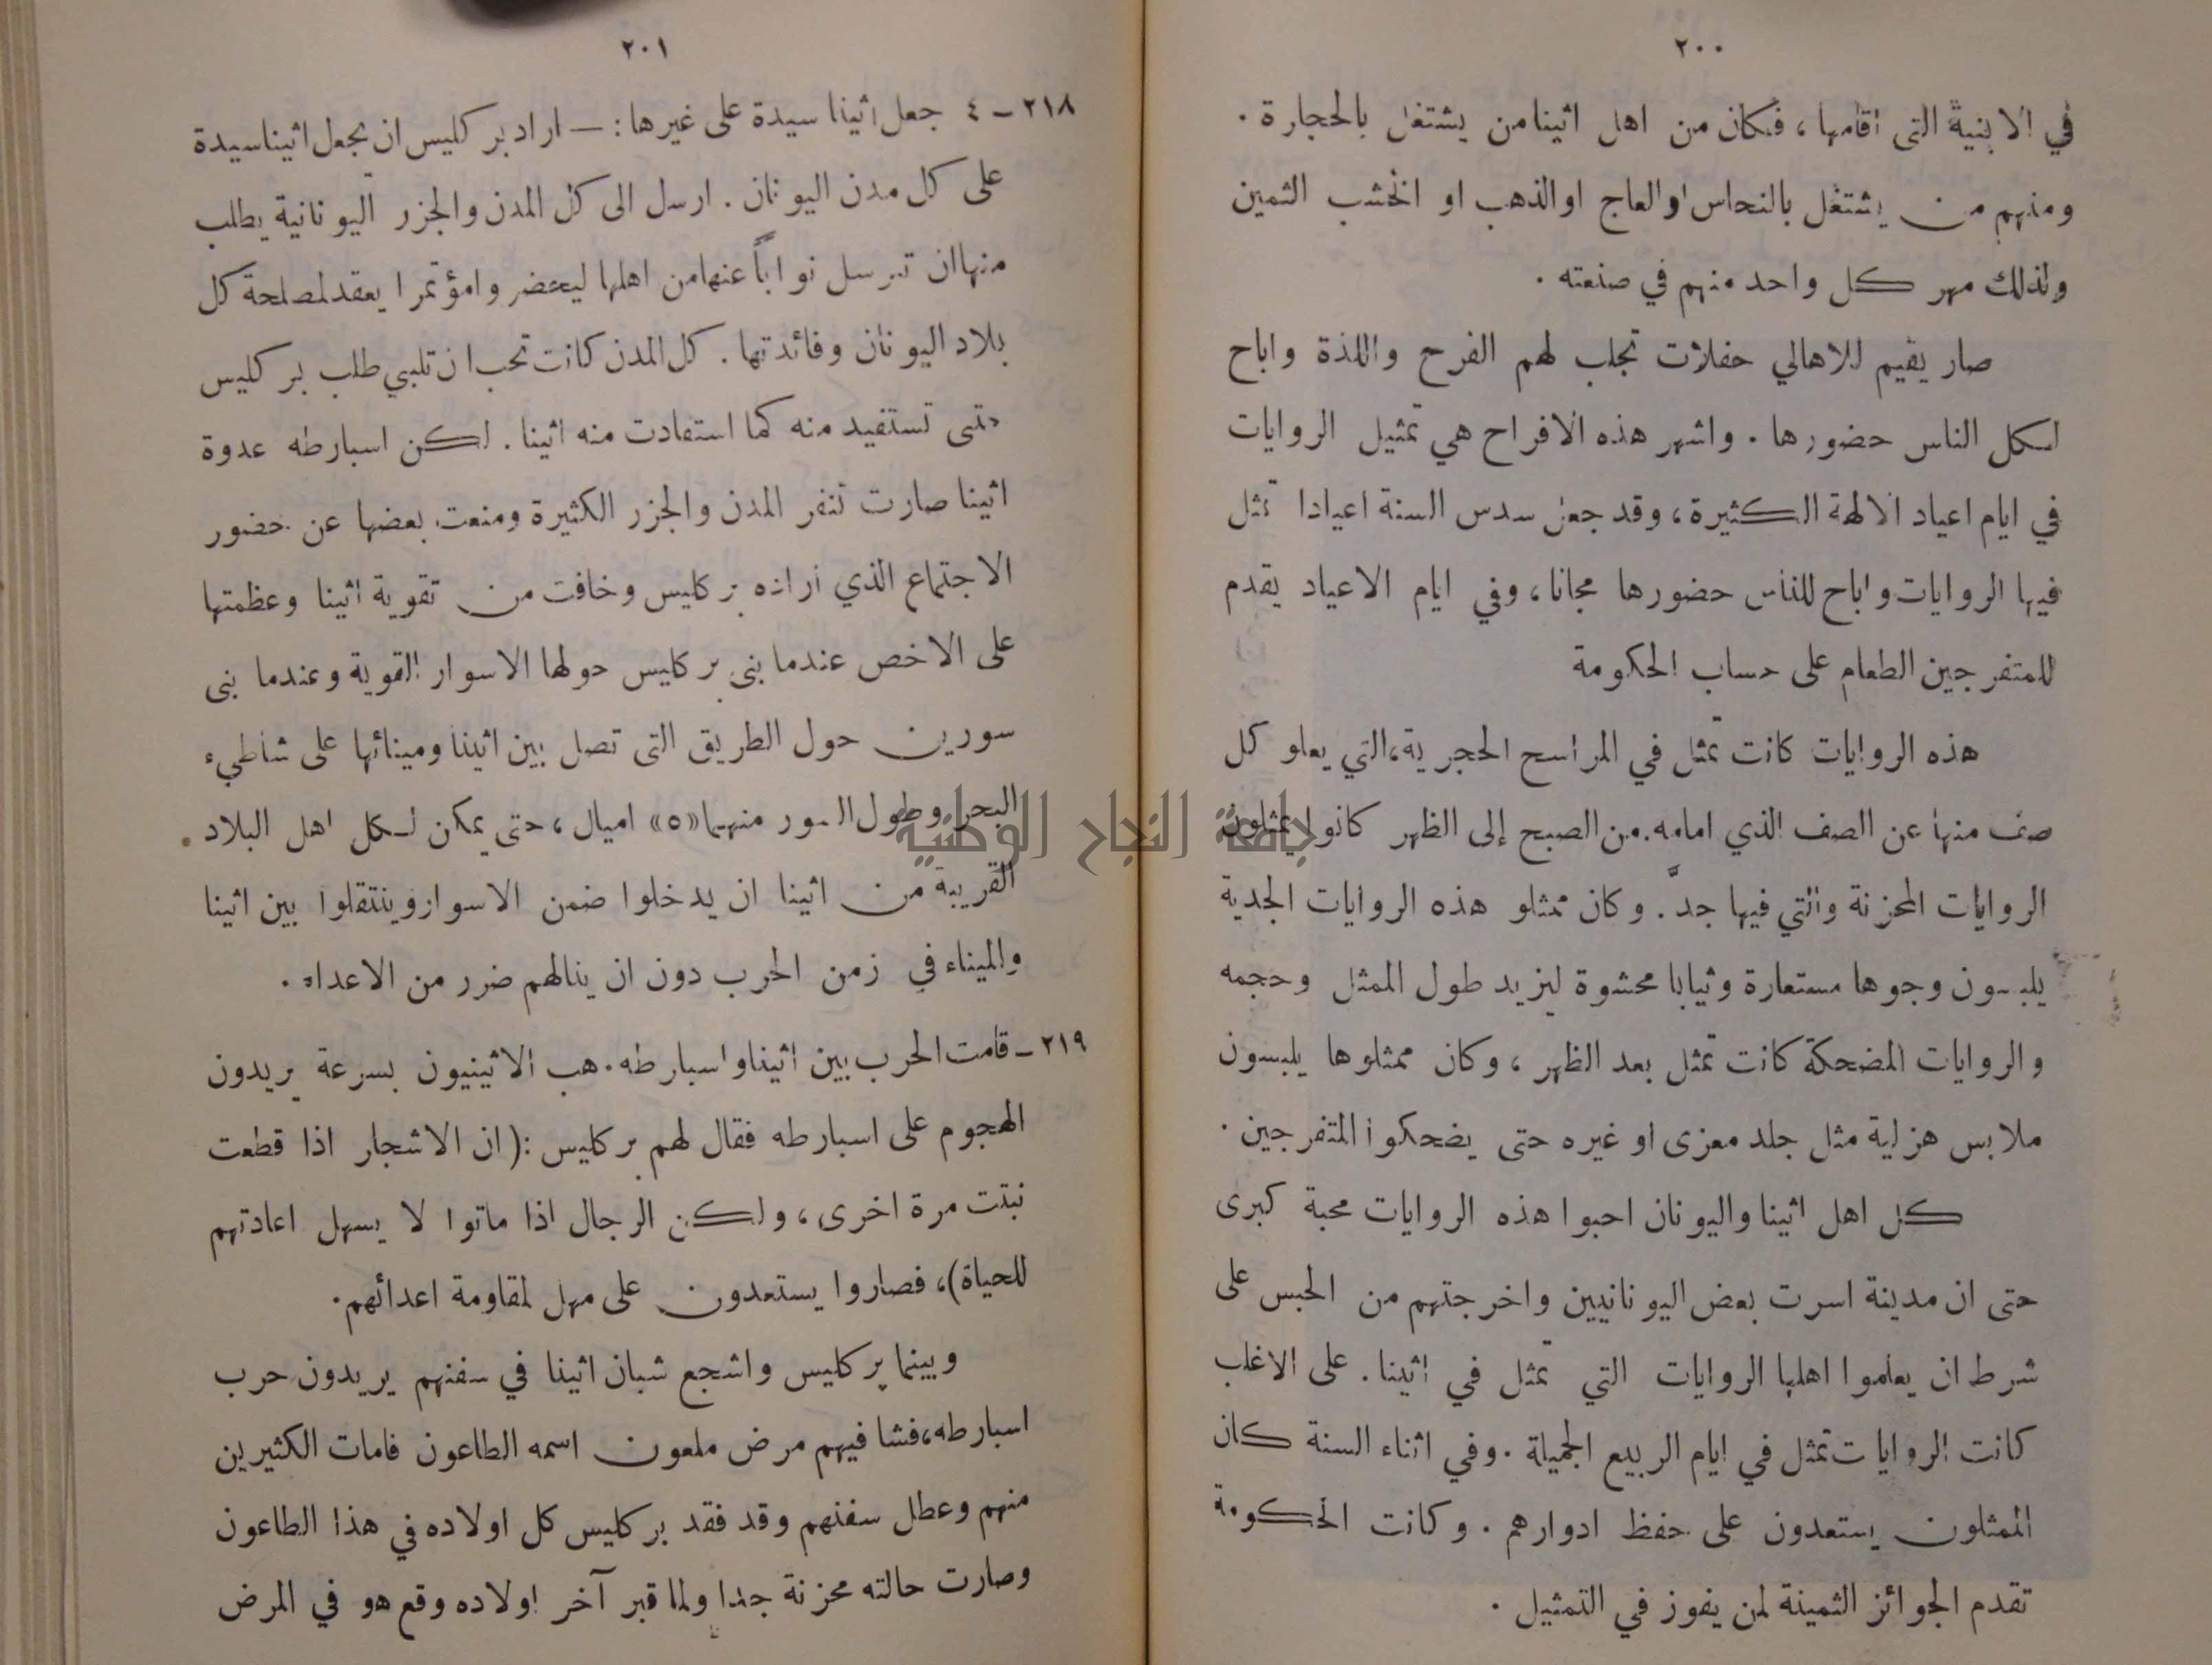 ٢٠٠
في الابنية التي اقامها، فكان من اهل اثينا من يشتغل بالحجارة.
ومنهم من يشتغل بالنحاس او العاج او الذهب او الخشب الثمين
ولذلك مهر كل واحد منهم في صنعته.
صار يقيم للاهالي حفلات تجلب لهم الفرح واللذة واباح
لكل الناس حضورها. واشهر هذه الافراح هي تمثيل الروايات
في ايام اعياد الالهة الكثيرة، وقد جعل سدس السنة اعيادا تمثل
فيها الروايات واباح للناس حضورها مجانا، وفي ايام الاعياد يقدم
للمتفرجين الطعام على حساب الحكومة
هذه الروايات كانت تمثل في المراسح الحجرية، التي يعلو كل
صف منها عن الصف الذي امامه. من الصبح إلى الظهر كانوا يمثلون
الروايات المحزنة والتي فيها جدّ. وكان ممثلو هذه الروايات الجدية
يلبسون وجوها مستعارة وثيابا محشوة ليزيد طول الممثل وحجمه
والروايات المضحكة كانت تمثل بعد الظهر، وكان ممثلوها يلبسون
ملابس هزلية مثل جلد معزى او غيره حتى يضحكوا المتفرجين.
كل اهل اثينا واليونان احبوا هذه الروايات محبة كبرى
حتى ان مدينة اسرت بعض اليونانيين واخرجتهم من الحبس على
شرط ان يعلموا اهلها الروايات التي تمثل في اثينا. على الاغلب
كانت الروايات تمثل في ايام الربيع الجميلة. وفي اثناء السنة كان
الممثلون يستعدون على حفظ ادوارهم. وكانت الحكومة
تقدم الجوائز الثمينة لمن يفوز في التمثيل.
٢٠١
٢١٨ – ٤ جعل اثينا سيدة على غيرها: – اراد بركليس ان يجعل اثينا سيدة
على كل مدن اليونان. ارسل الى كل المدن والجزر اليونانية يطلب
منها ان ترسل نواباً عنها من اهلها ليحضروا مؤتمرا يعقد لمصلحة كل
بلاد اليونان وفائدتها. كل المدن كانت تحب ان تلبي طلب بركليس
حتى تستفيد منه كما استفادت منه اثينا. لكن اسبارطه عدوة
اثينا صارت تنفر المدن والجزر الكثيرة ومنعت بعضها عن حضور
الاجتماع الذي اراده بركليس وخافت من تقوية اثينا وعظمتها
على الاخص عندما بنى بركليس حولها الاسوار القوية وعندما بنى
سورين حول الطريق التي تصل بين اثينا ومينائها على شاطيء
البحر وطول السور منهما «٥» اميال، حتى يمكن لكل اهل البلاد
القريبة من اثينا ان يدخلوا ضمن الاسوار وينتقلوا بين اثينا
والميناء في زمن الحرب دون ان ينالهم ضرر من الاعداء.
٢١٩ – قامت الحرب بين اثينا واسبارطه. هب الاثينيون بسرعة يريدون
الهجوم على اسبارطه فقال لهم بركليس: (ان الاشجار اذا قطعت
نبتت مرة اخرى، ولكن الرجال اذا ماتوا لا يسهل اعادتهم
للحياة)، فصاروا يستعدون على مهل لمقاومة اعدائهم.
وبينما بركليس واشجع شبان اثينا في سفنهم يريدون حرب
اسبارطه، فشا فيهم مرض ملعون اسمه الطاعون فامات الكثيرين
منهم وعطل سفنهم وقد فقد بركليس كل اولاده في هذا الطاعون
وصارت حالته محزنة جدا ولما قبر آخر اولاده وقع هو في المرض
جامعة النجاح الوطنية